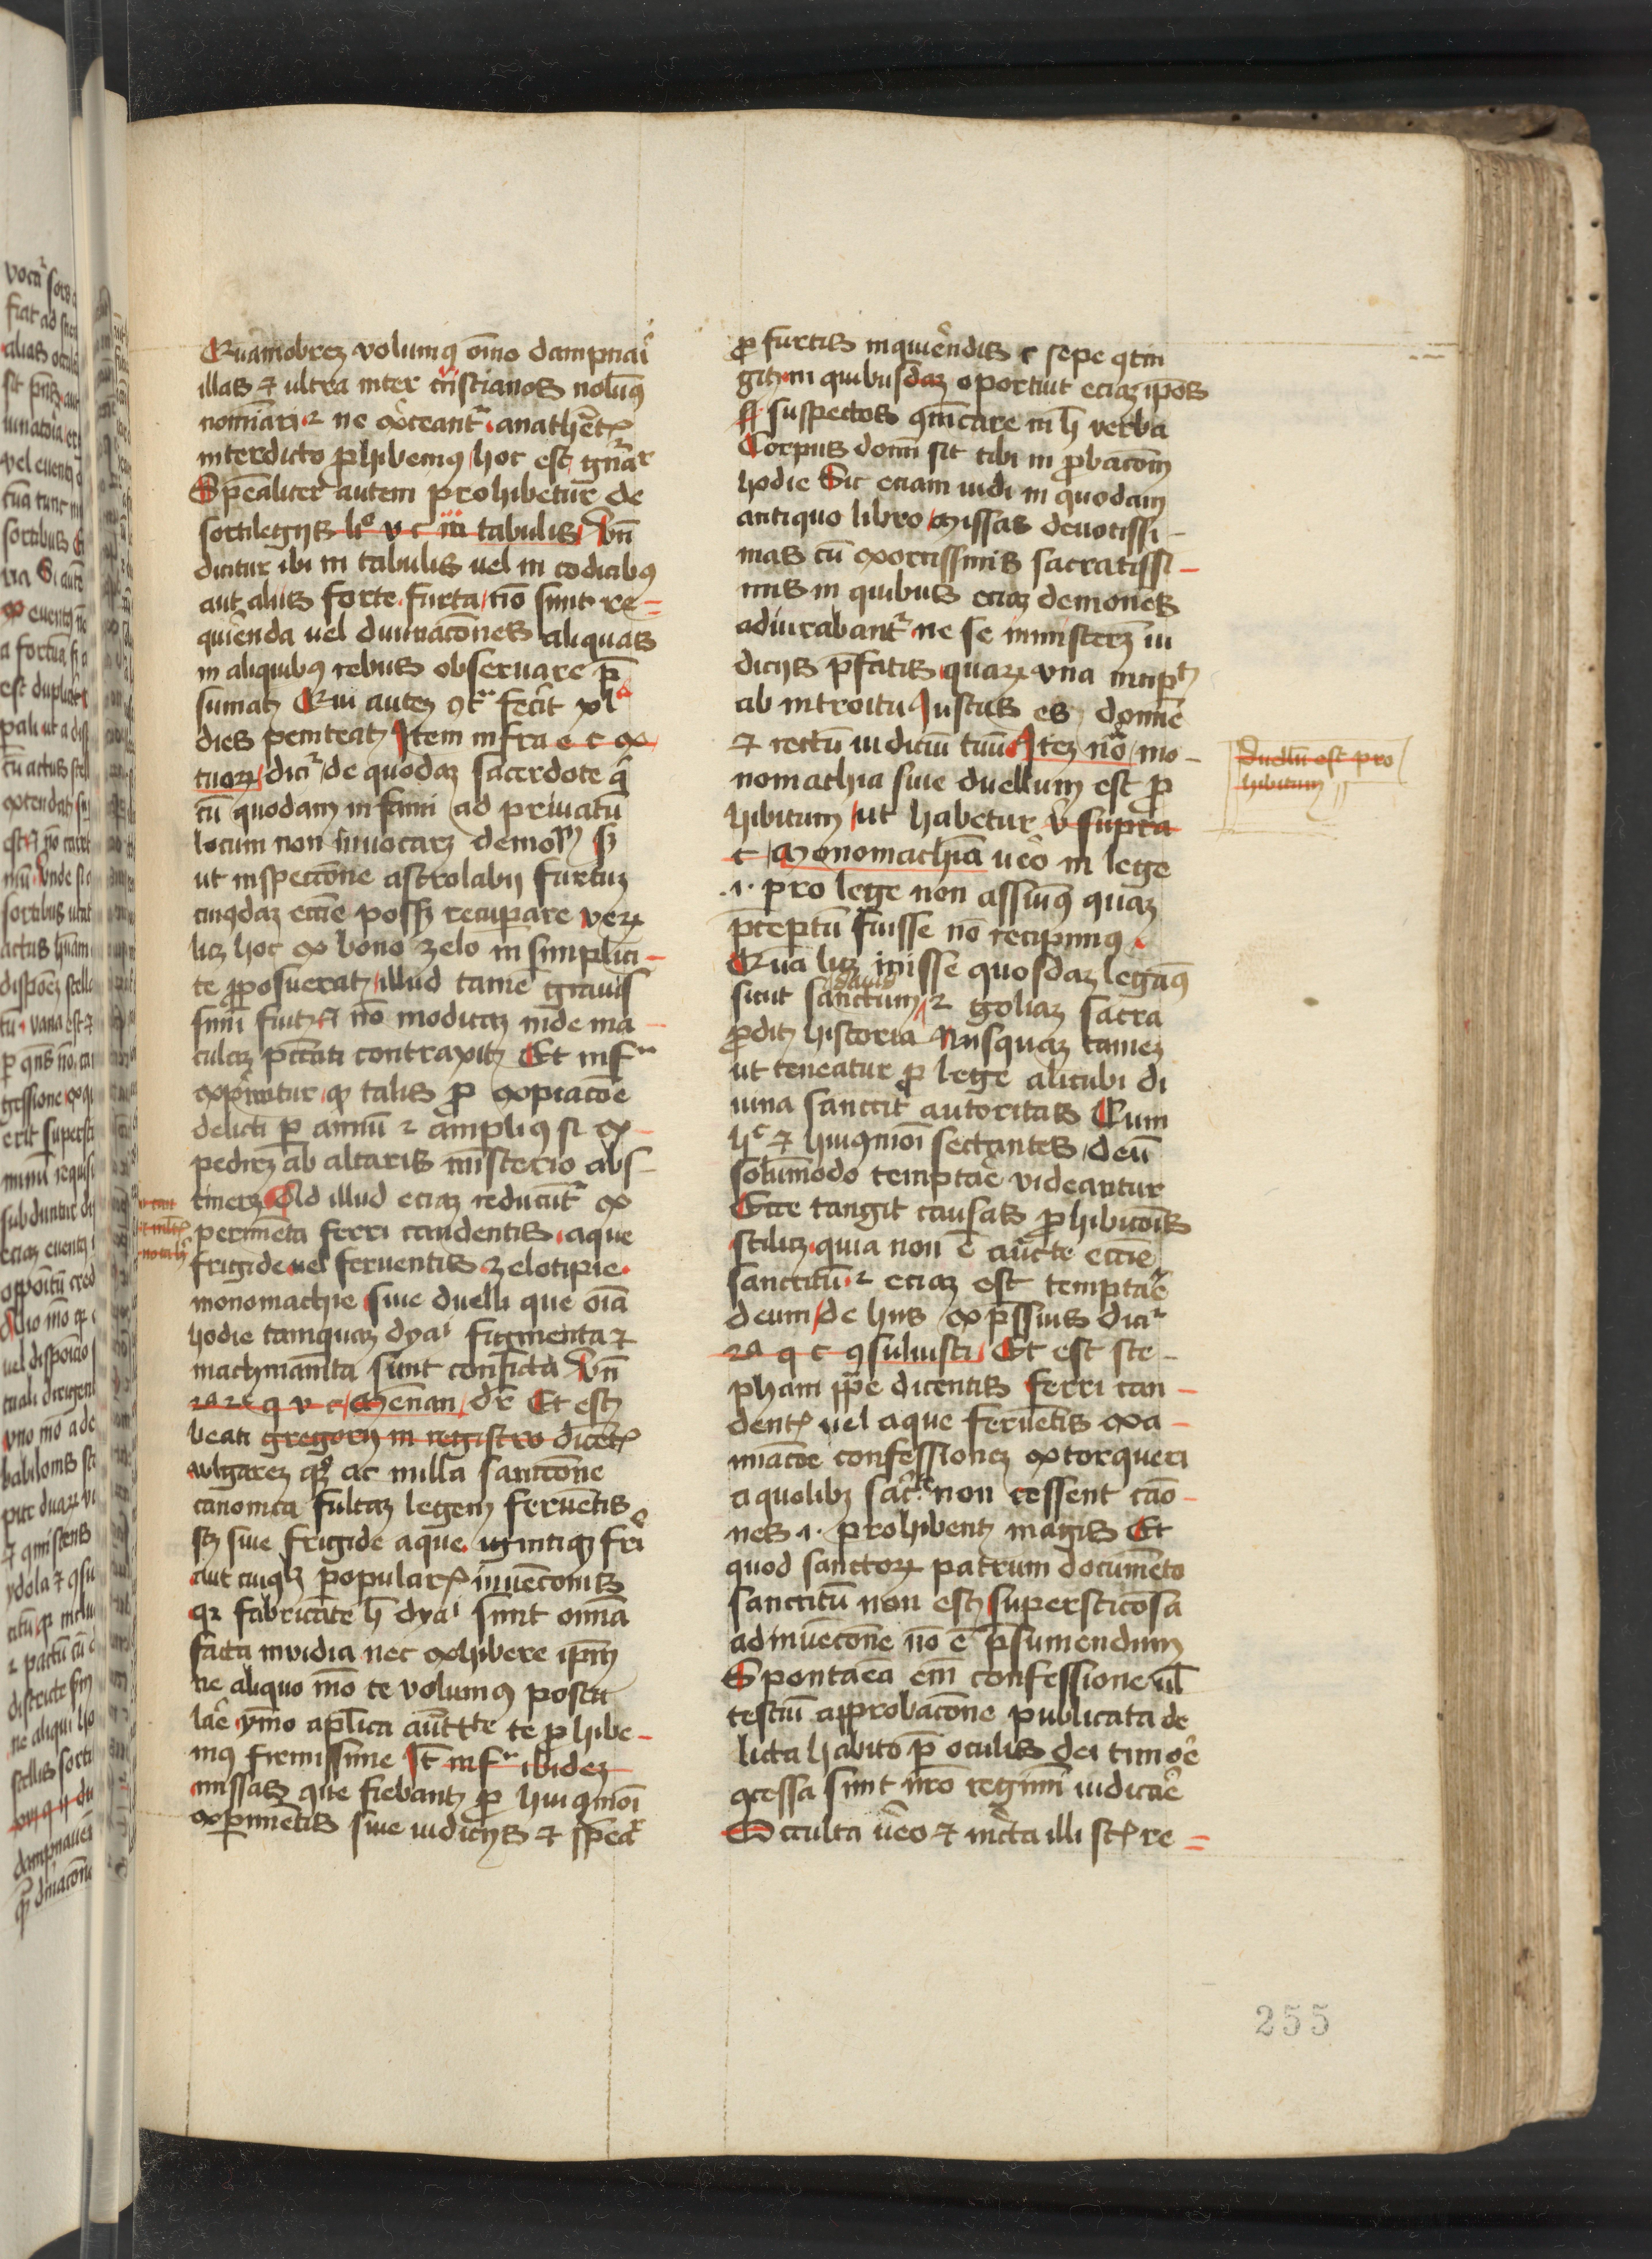 Quamobrez volumus omno dampnari
illas et ultra inter cristianos nolumus
nominari et ne exerceantur anathematis
interdicto prohibemus hoc est generaliter
Specialiter autem prohibetur de
sortilegijs li v c in tabulis Un
dicitur ibi in tabulis uel in codicibus
aut alijs sorte furta non sunt re=
quirenda uel diuinacones aliquas
in aliquibus rebus obseruare pre
sumat Qui autem contra fecerit xl
dies peniteat Item infra e c ex
tuarum dicitur de quodam sacerdote qui
cum quodam infami ad priuatum
locum non inuocarem demonium sed
ut inspeccone astrolabij furtum
cuiusdam eccie posset recuperare verum
licet hoc ex bono zelo in simplici-
te proposuerat illud tamen grauis
simum fuit et non modicam inde ma-
culam peccati contraxit Et infra
exprimitur quod talis pro expiacone
delicti per annum et amplius si ex-
pedierit ab altaris misterio abs-
tineret Ad illud eciam reducuntur ex
perimenta ferri candentis aque
frigide uel feruentis zelotipie
monomachie siue duelli que omnia
hodie tamquam dyaboli figmenta et
machinamenta sunt conficta Un
2a 2e q v c Mennam dr Et est
beati gregorij in registro dicentis
vulgarem ac nulla sanccone
canonica fultam legem feruentis
siue frigide aque ignitique ferri
aut cuiuslibet popularis inuenconis
quia fabricante hec dyaboli sunt omnia
ficta inuidia nec exhibere ipsum
ne aliquo modo te volumus postu
lare ymo aplica auctoritate te prohibe-
mus firmissime Item infra ibidem
missas que fiebant pro huiusmodi
experimentis siue iudicijs et specialiter
pro furtis inquirendis et sepe contin
git in quibusdam oportuit eciam ipsos
suspectos communicare in hec verba
Corpus domini sit tibi in probaconem
hodie Sic eciam uidi in quodam
antiquo libro missas deuotissi-
mas cum exorcissmis sacratissi-
mis in quibus eciam demones
adiurabantur ne se immiscerent iu
dicijs prefatis quarum una incipit
ab introitu Iustus es domine
et rectum iudicium tuum Item nota mo-
nomachia siue duellum est pro
hibitum ut habetur v supra
c Monomachiam uero in lege
.i. pro lege non assumimus quam
preceptum fuisse non recipimus
Quam licet inisse quosdam legamus
sicut sanctum dauid et goliam sacra
prodit historia nusquam tamen
ut teneatur pro lege alicubi di
uina sanccit autoritas Cum
hec et huiusmodi sectantes deum
solummodo temptare videantur
Ecce tangit causas prohibiconis
scilicet quia non est auctoritate eccie
sanccitum et eciam est temptare
deum de hijs expressius dicitur
2a q c consuluisti Et est ste-
phani pape dicentis ferri can-
dentis uel aque feruentis exa-
minacone confessionem extorqueri
a quolibet sacri non censent cano-
nes .i. prohibent magis Et
quod sanctorum patrum documento
sanccitum non est supersticosa
adinuencone non est presumendum
Spontanea enim confessione uel
testium approbacone publicata de
licta habito pre oculis dei timore
concessa sunt nostro regimini iudicare
Occulta uero et incerta illi sunt re=
Duellum est pro
hibitum
255